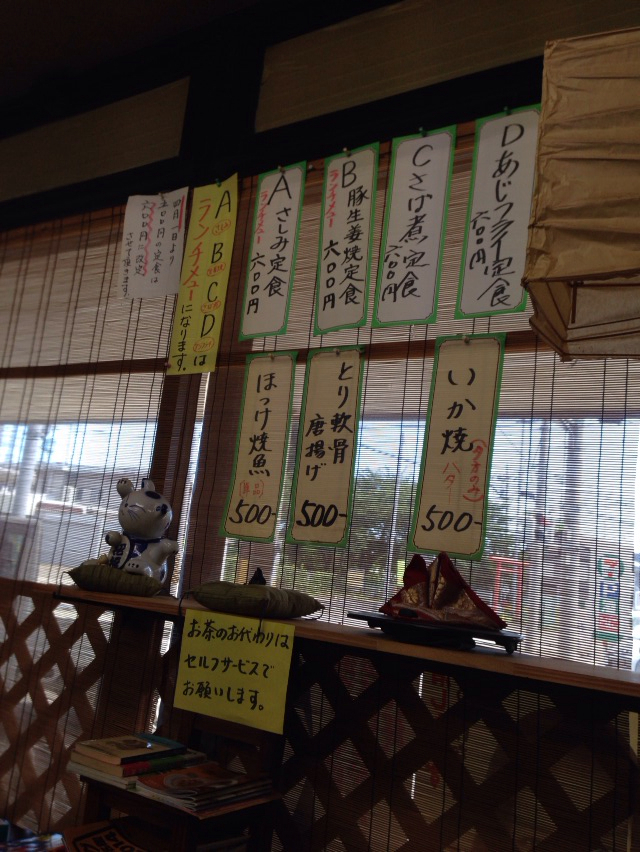 四月一日より
五〇〇円の定食は
六〇〇円に改定
させて頂きます。
A B C D は
ランチメニューになります。
A さしみ定食
ランチメニュー 六〇〇円
B 豚生姜焼定食
ランチメニュー 六〇〇円
C さば煮定食
六〇〇円
D あじフライ定食
六〇〇円
ほっけ焼魚
単品
500-
とり軟骨
唐揚げ
500-
いか焼
バター
500-
お茶のお代わりは
セルフサービスで
お願いします。